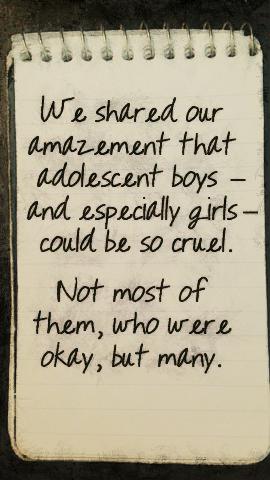 We shared our
amazement that
adolescent boys –
and especially girls –
could be so cruel.
Not most of
them, who were
okay, but many.